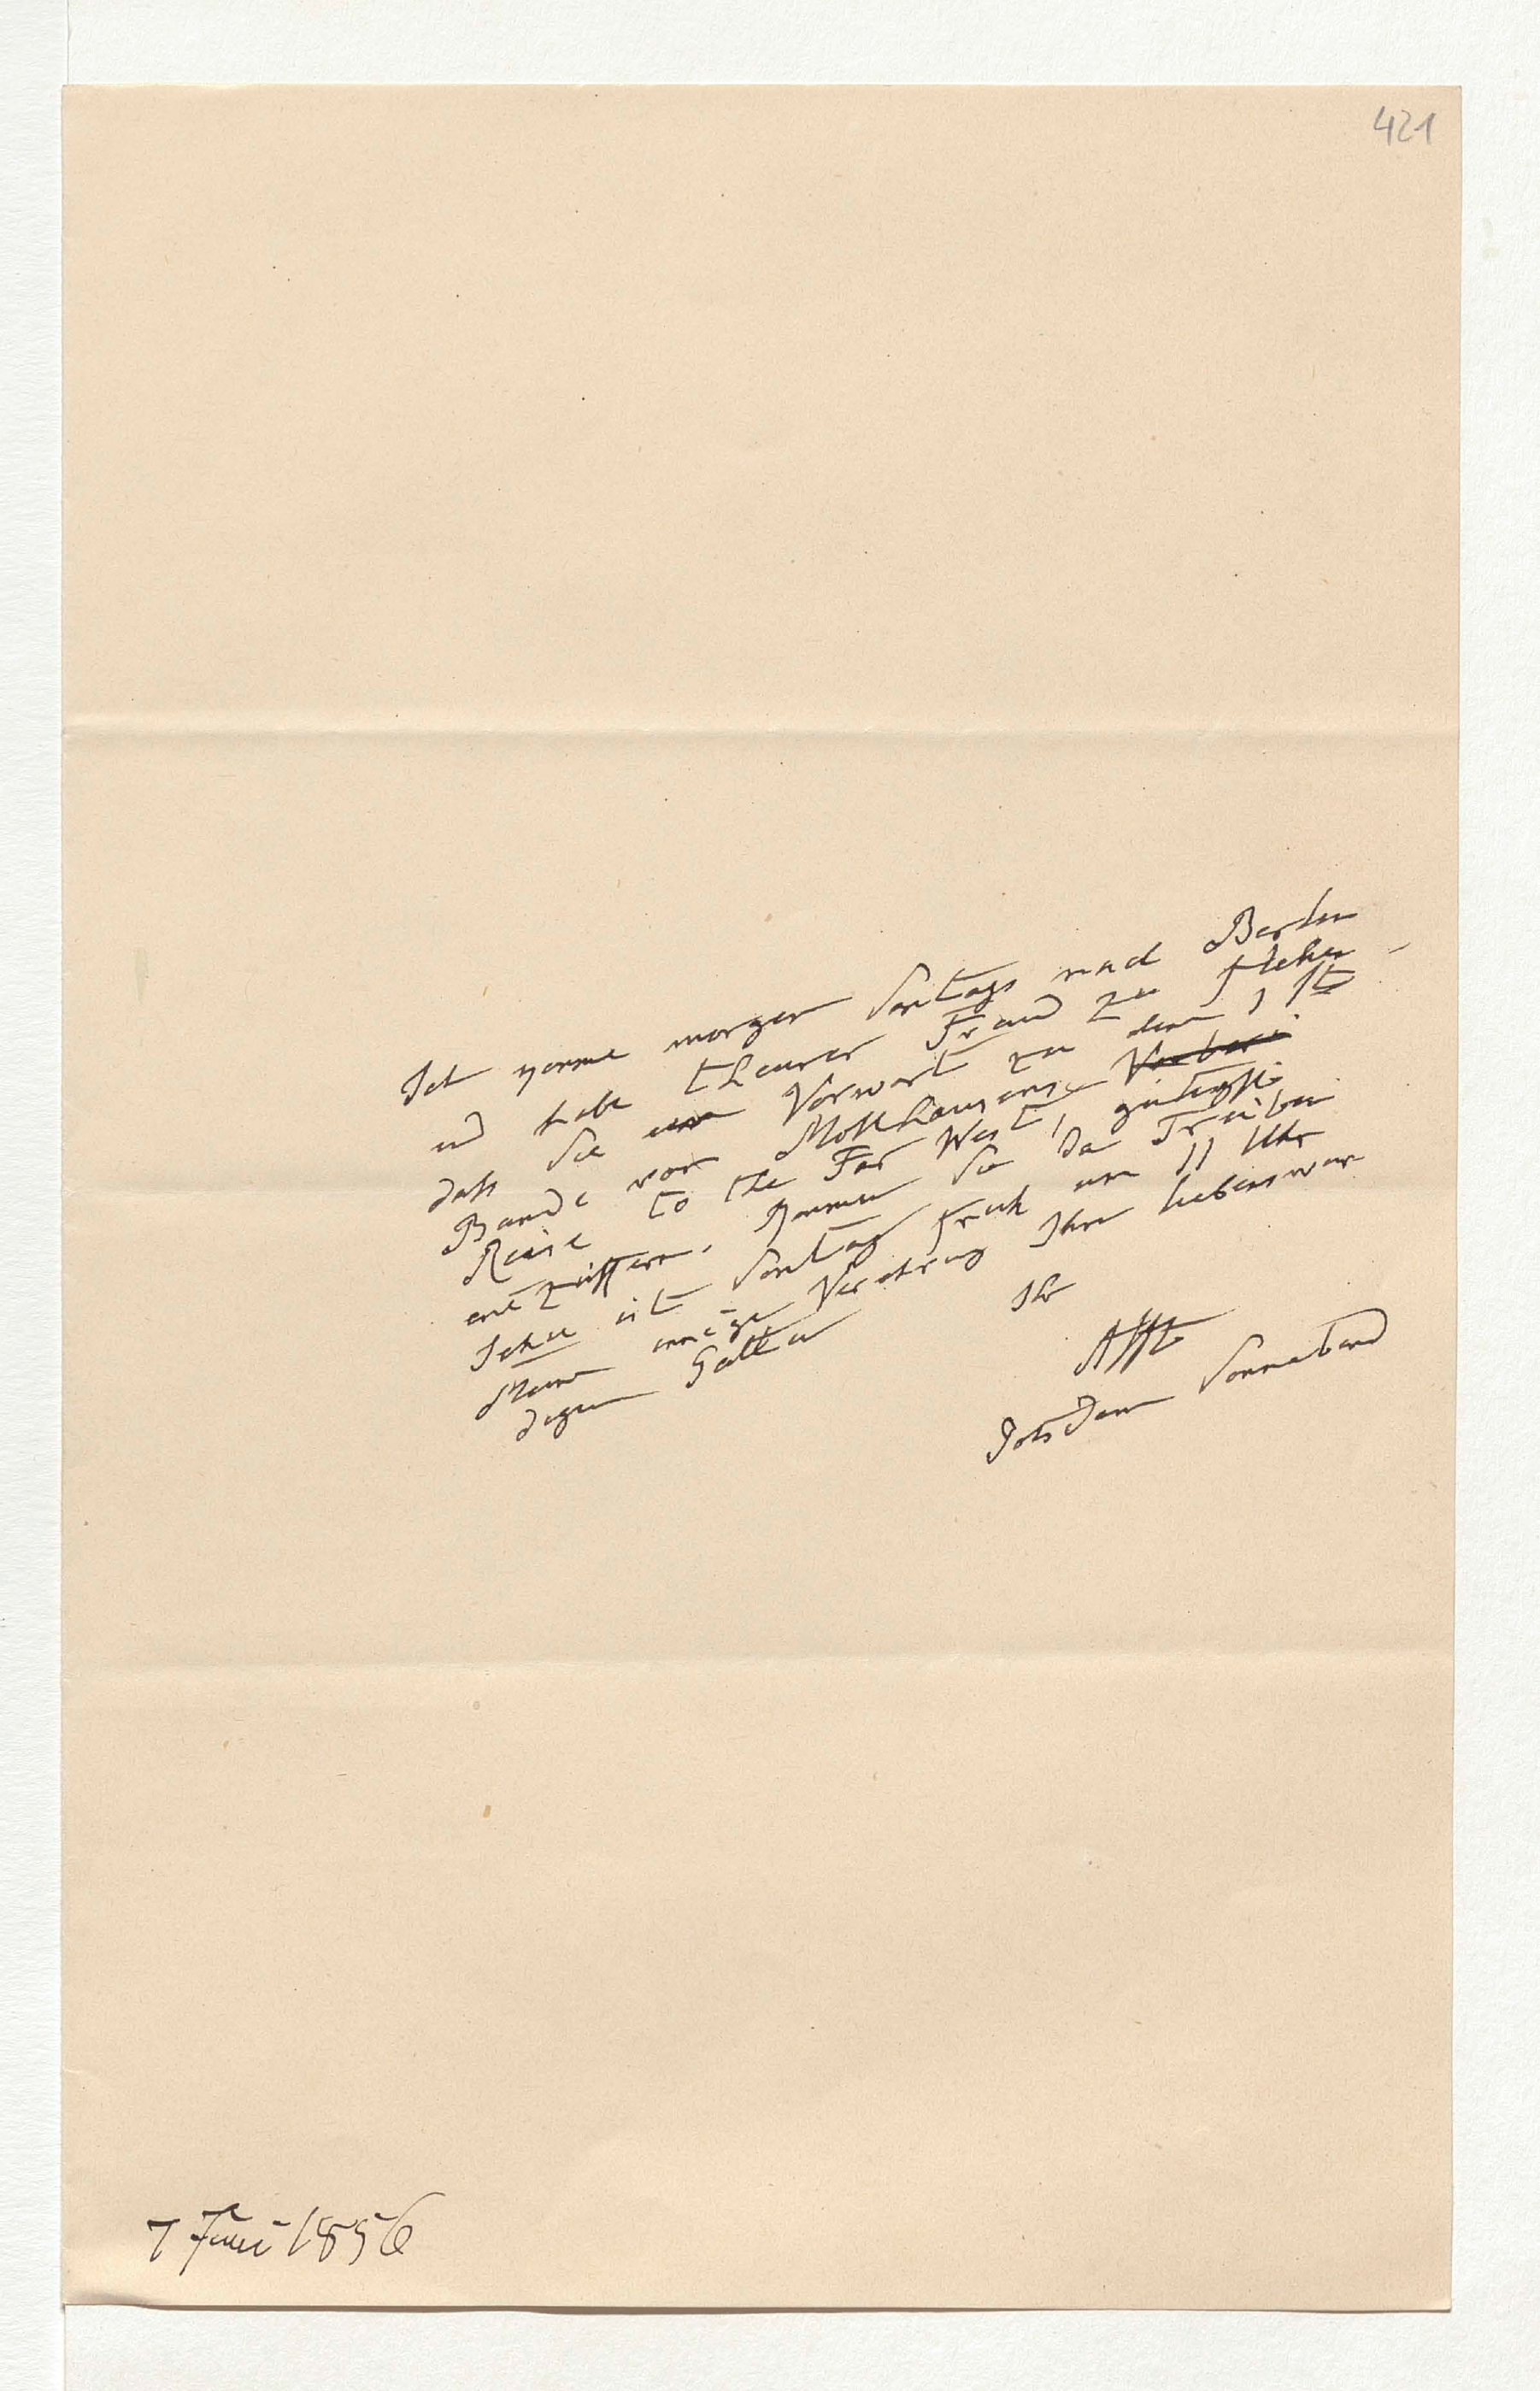 421
Ich komme morgen Sontags nach Berlin
und habe theurer Freund zu flehen
dass Sie ein Vorwort zu dem 1ste
Bande von Möllhausens Vorberei
Reise to the Far West, gütigst
entziffern. Kommen Sie da Trüben
Sehee ist Sontag früh um 11 Uhr
Meine innige Verehrung Ihrer liebenswür
digen Gattin
Ihr
AHt
Potsdam Sonnabend
7 Juni 1856